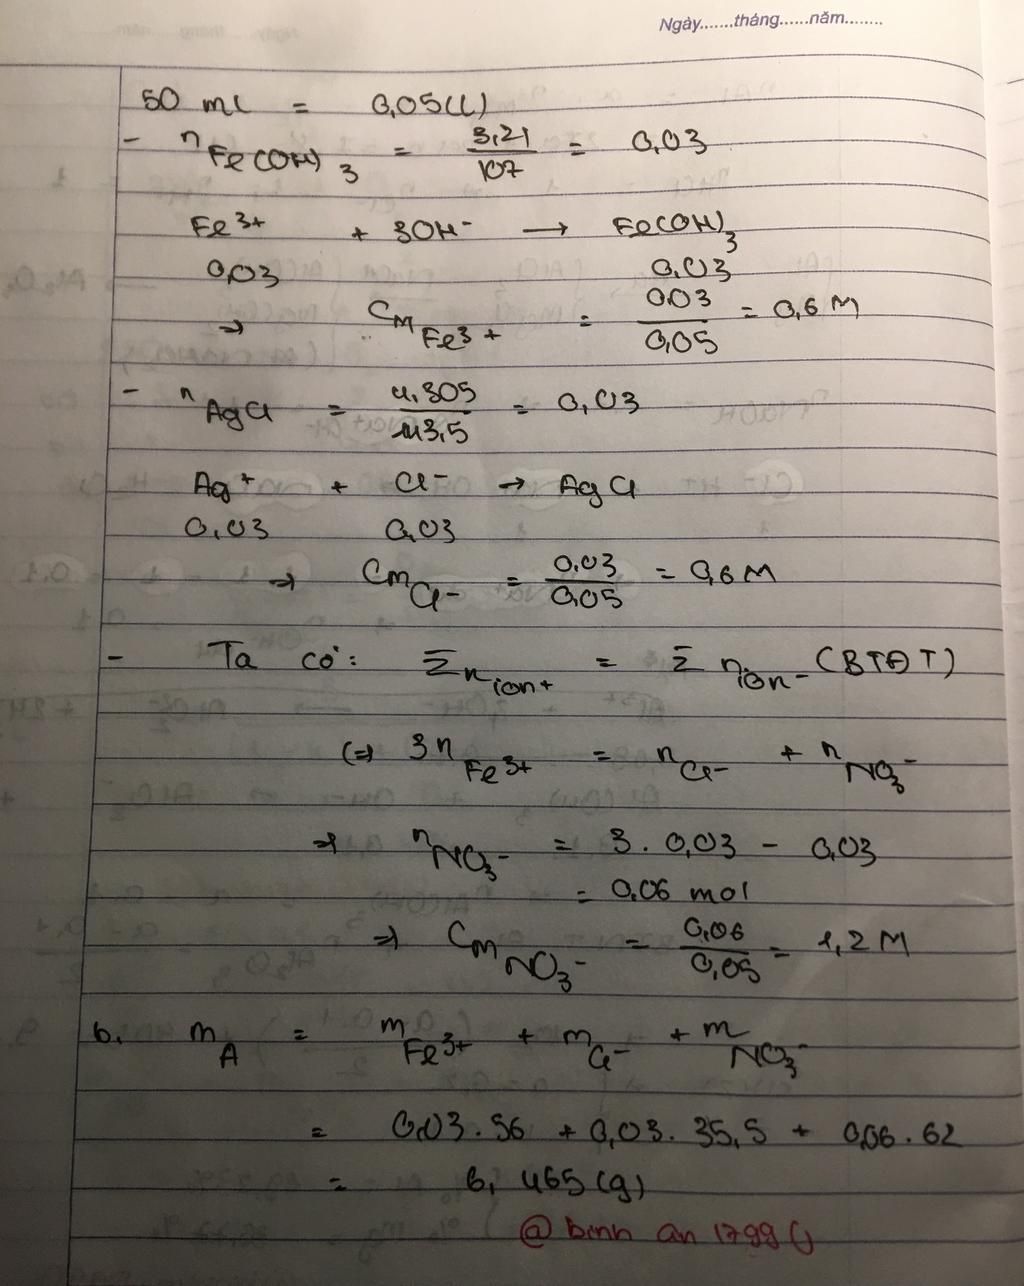 Ngày.......tháng......năm........
50 ml = 0,05(L)
- nFe(OH)3 = 3,21/107 = 0,03
Fe3+ + 3OH- → Fe(OH)3
0,03 0,03
→ CM Fe3+ = 0,03/0,05 = 0,6 M
- nAgCl = 4,305/143,5 = 0,03
Ag+ + Cl- → AgCl
0,03 0,03
→ CM Cl- = 0,03/0,05 = 0,6 M
- Ta có: Σn ion+ = Σ n ion- (BTĐT)
(=) 3nFe3+ = nCl- + nNO3-
⇒ nNO3- = 3 . 0,03 - 0,03
= 0,06 mol
⇒ CM NO3- = 0,06/0,05 = 1,2 M
b. mA = mFe3+ + mCl- + mNO3-
= 0,03.56 + 0,03.35,5 + 0,06.62
= 6,465 (g)
@ binh an 1799 ()